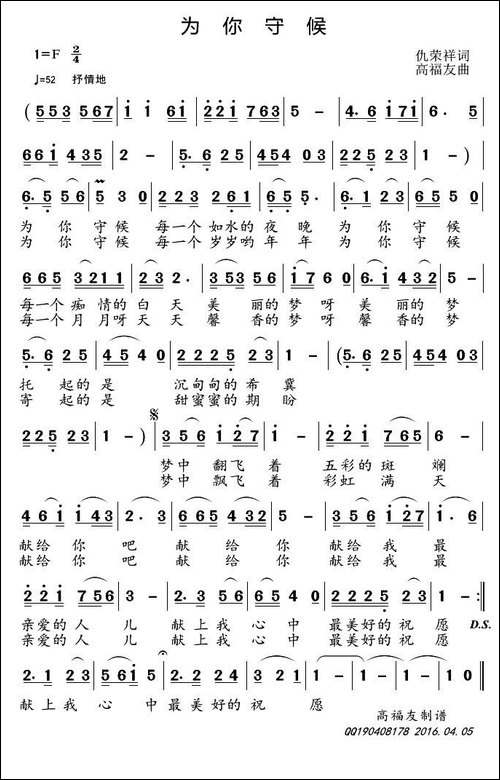 为 你 守 候
1=F 2/4
仇荣祥词
♩=52 抒情地
高福友曲
( 553 567 | i i 6i | 22i 763 | 5 - | 4. 6 i7i |
66i 435 | 2 - | 5. 6 25 | 454 03 | 225 23 | 1 - ) |
6. 5 56 | 5 3 0 | 223 261 | 6 5 5. | 6. 1 23 | 65 5 0 |
为 你 守候 每一个 如水的 夜 晚 为 你 守候
为 你 守候 每一个 岁岁哟 年 年 为 你 守候
665 3211 | 23 2. | 353 56 | i76 0 | 6. i 432 | 5 - |
每一个 痴 情的 白 天 美 丽的 梦 呀 美 丽的 梦
每一个 月 月呀 天 天 馨 香的 梦 呀 馨 香的 梦
5. 6 25 | 45 4 0 | 2225 23 | 1 - | (5. 6 25 | 454 03 |
托 起的 是 沉甸甸的 希 冀
寄 起的 是 甜蜜蜜的 期 盼
225 23 | 1 - ) | 356 i27 | i - | 22i 765 | 6 - |
梦中 翻飞 着 五彩的 斑 斓
梦中 飘飞 着 彩虹 满 天
46i i43 | 2. 3 | 765 632 | 5 - | 356 i27 | i. 05 |
献给 你 吧 献 给 你 献给 我 最
献给 你 吧 献 给 你 献给 我 最
22i 7 56 | 3 - | 2. 1 23 | 56i 5 | 222 23 | 1 - :‖
亲爱的 人 儿 献 上 我 心 中 最美好的 祝 愿 D.S.
亲爱的 人 儿 献 上 我 心 中 最美好的 祝 愿
2. 1 23 | 56i 5 | 2. 2 24 | 3 23 | 1 - | 1 - | 1 0 ‖
献 上 我 心 中 最 美 好 的 祝 愿
高福友制谱
QQ190408178 2016.04.05